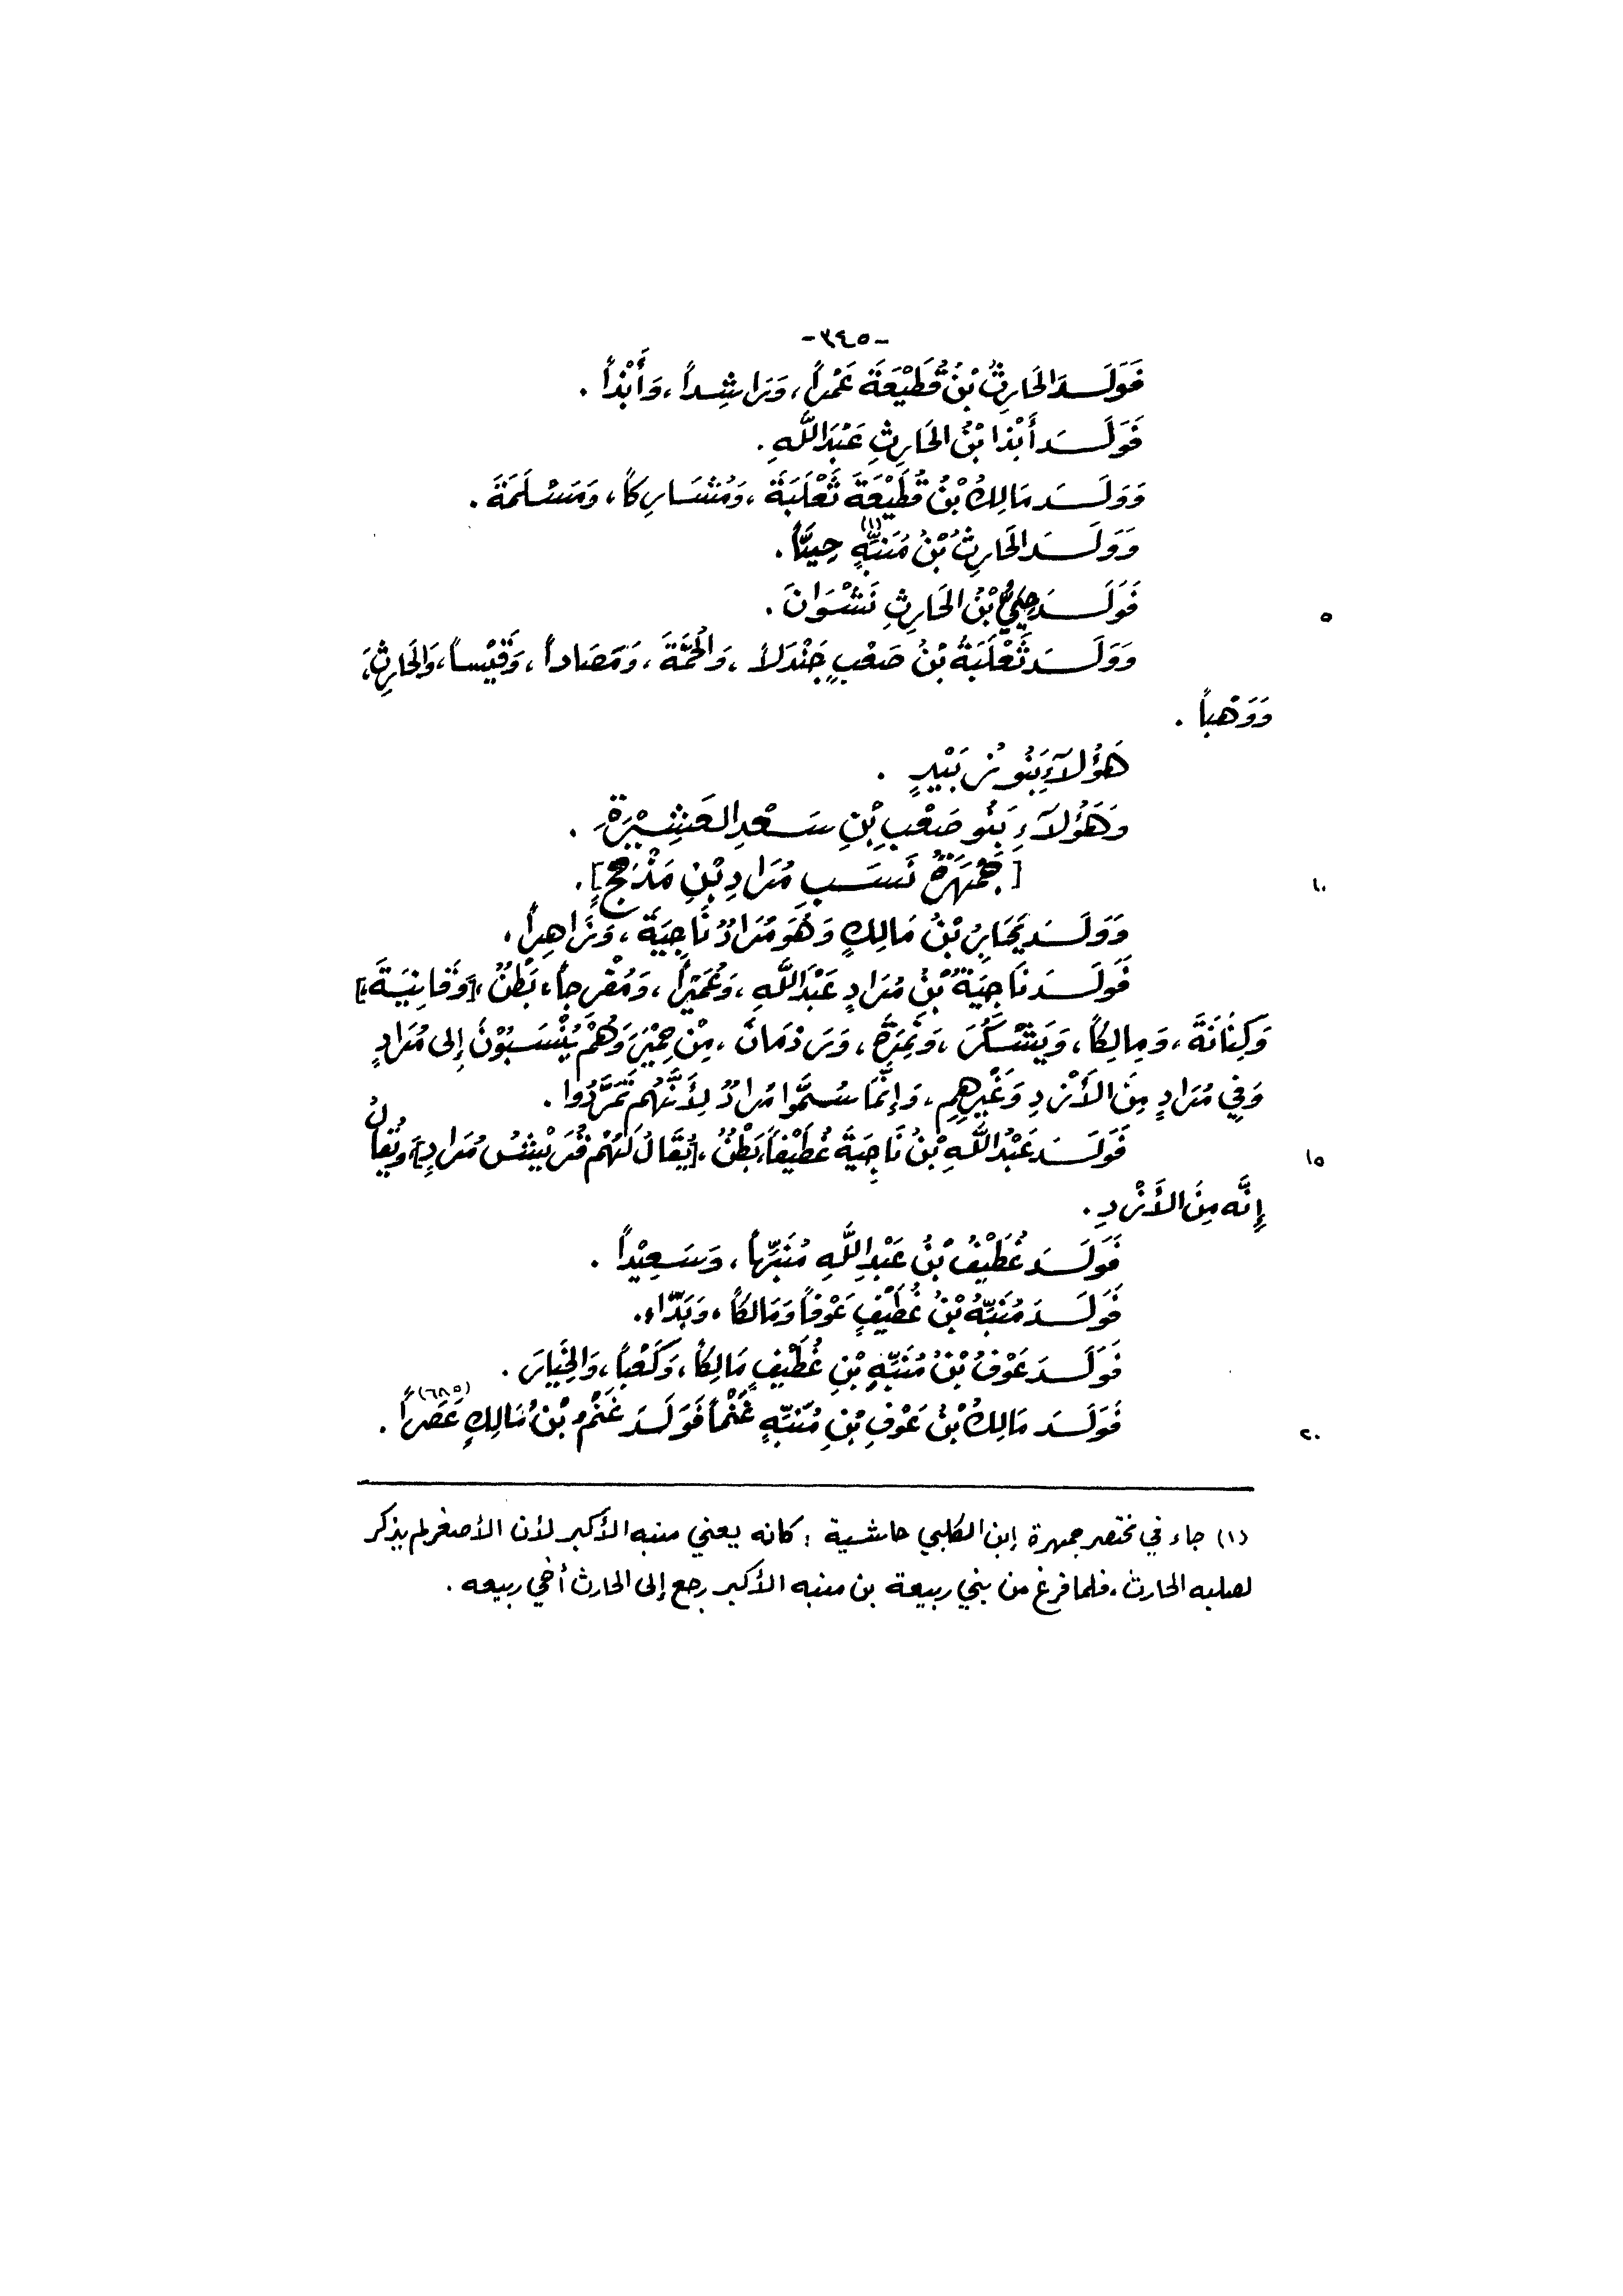 -٣٤٥-
فَوَلَدَ الحَارِثُ بْنُ قُطَيْعَةَ عَمْراً، وَرَاشِداً، وَأَبْذاً.
فَوَلَدَ أَبْذَا بْنُ الحَارِثِ عَبْدَ اللَّهِ.
وَوَلَدَ مَالِكُ بْنُ قُطَيْعَةَ ثَعْلَبَةَ، وَمُشَارِكاً، وَمَسْلَمَةَ.
وَوَلَدَ الحَارِثُ بْنُ مُنَبِّهٍ (١) حِييَّاً.
فَوَلَدَ حِيَيُّ بْنُ الحَارِثِ نَشْوَانَ.
٥
وَوَلَدَ ثَعْلَبَةُ بْنُ صَعْبٍ جَنْدَلاً، وَالحُمَّةَ، وَمَصَاداً، وَقَيْساً، وَالحَارِثَ،
وَوَهْباً.
هَؤُلَاءِ بَنُو زُبَيْدٍ.
وَهَؤُلَاءِ بَنُو صَعْبِ بْنِ سَعْدِ العَشِيْرَةِ.
[جَمْهَرَةُ نَسَبِ مُرَادِ بْنِ مَذْحِجٍ].
١٠
وَوَلَدَ يَحَابِرُ بْنُ مَالِكٍ وَهُوَ مُرَادٌ نَاجِيَةَ، وَزَاهِراً.
فَوَلَدَ نَاجِيَةُ بْنُ مُرَادٍ عَبْدَ اللَّهِ، وَعُمَيْراً، وَمُفْرِجاً، بَطْنٌ، [وَقَانِيَةَ]
وَكِنَانَةَ، وَمَالِكاً، وَيَشْكُرَ، وَنَمِرَةَ، وَرَدْمَانَ، مِنْ حِمْيَرَ وَهُمْ يُنْسَبُوْنَ إِلى مُرَادٍ
وَفِي مُرَادٍ مِنَ الأَزْدِ وَغَيْرِهِمِ، وَإِنَّمَا سُمُّوا مُرَادٌ لِأَنَّهُم تَمَرَّدُوا.
فَوَلَدَ عَبْدُ اللَّهِ بْنُ نَاجِيَةَ غُطَيْفاً، بَطْنٌ، [يُقَالُ لَهُمْ قُرَيْشُ مُرَادٍ] وَيُقَالُ
١٥
إِنَّه مِنَ الأَزْدِ.
فَوَلَدَ غُطَيْفُ بْنُ عَبْدِ اللَّهِ مُنَبِّهاً، وَسَعِيْداً.
فَوَلَدَ مُنَبِّهُ بْنُ غُطَيْفٍ عَوْفاً وَمَالكاً، وَبَدَّاء.
فَوَلَدَ عَوْفُ بْنُ مُنَبِّهِ بْنِ غُطَيْفٍ مَالِكاً، وَكَعْباً، وَالخِيَارَ.
فَوَلَدَ مَالِكُ بْنُ عَوْفِ بْنِ مُنَبِّهٍ غَنْماً فَوَلَدَ غَنْمُ بْنُ مَالِكٍ عَصَراً (٦٨٥).
٢٠
(١) جاء في مختصر جمهرة إبن الكلبي حاشية : كانه يعني منبه الأكبر لأن الأصغر لم يذكر
لصلبه الحارث، فلما فرغ من بني ربيعة بن منبه الأكبر رجع إلى الحارث أخي ربيعه.